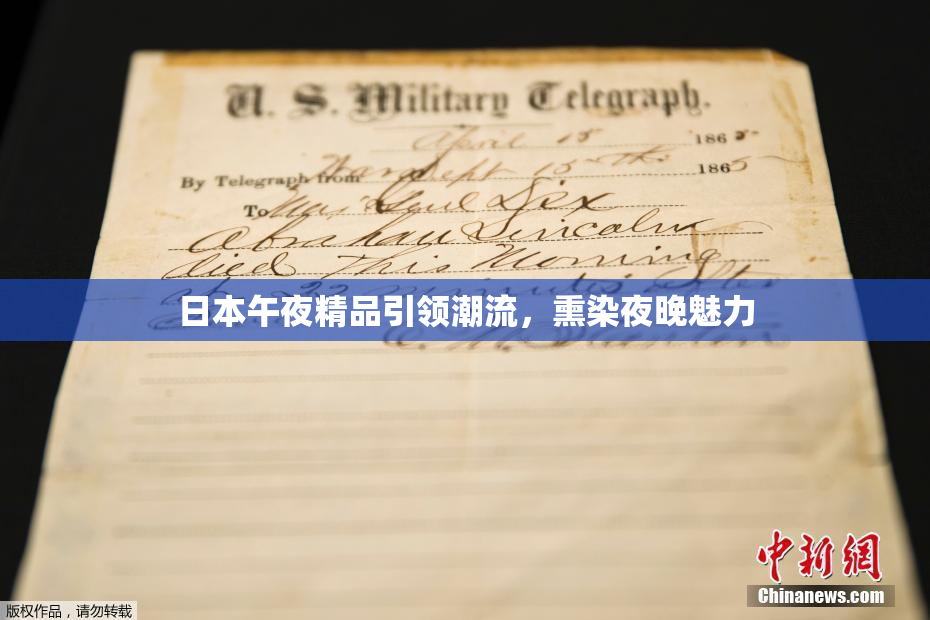 U. S. Military Telegraph.
April 15 1865
By Telegraph from War Dept 15th 1865
To Maj Genl Dix
Abraham Lincoln
died this Morning
at 22 minutes after
日本午夜精品引领潮流，熏染夜晚魅力
E. M. Stanton
中新网
版权作品，请勿转载
Chinanews.com